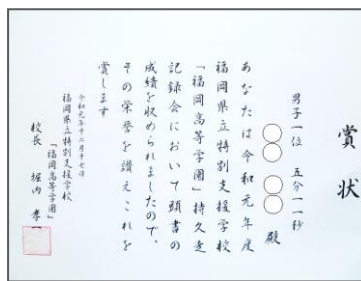 賞状
男子一位 五分一一秒
〇〇 〇〇 殿
あなたは令和元年度
福岡県立特別支援学校
「福岡高等学園」持久走
記録会において頭書の
成績を収められましたので、
その栄誉を讃えこれを
賞します
令和元年十二月十七日
福岡県立特別支援学校
「福岡高等学園」
校長 堀内 孝一